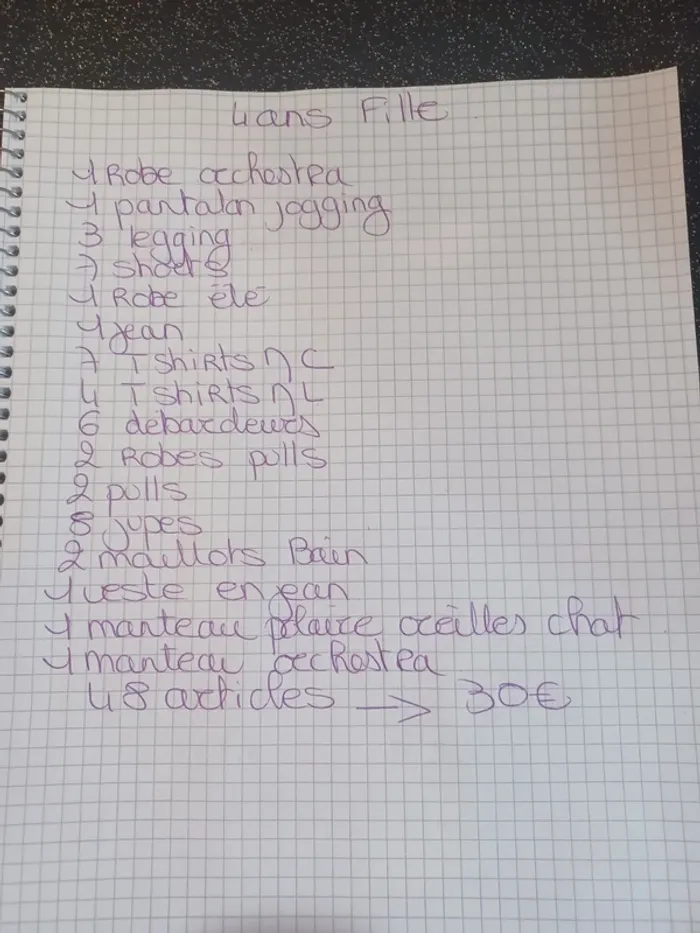 4 ans Fille
1 Robe orchestra
1 pantalon jogging
3 legging
7 shorts
1 Robe été
1 jean
7 T shirts M C
4 T shirts M L
6 debardeurs
2 Robes pulls
2 pulls
8 jupes
2 maillots Bain
1 veste en jean
1 manteau polaire oreilles chat
1 manteau orchestra
48 articles → 30€